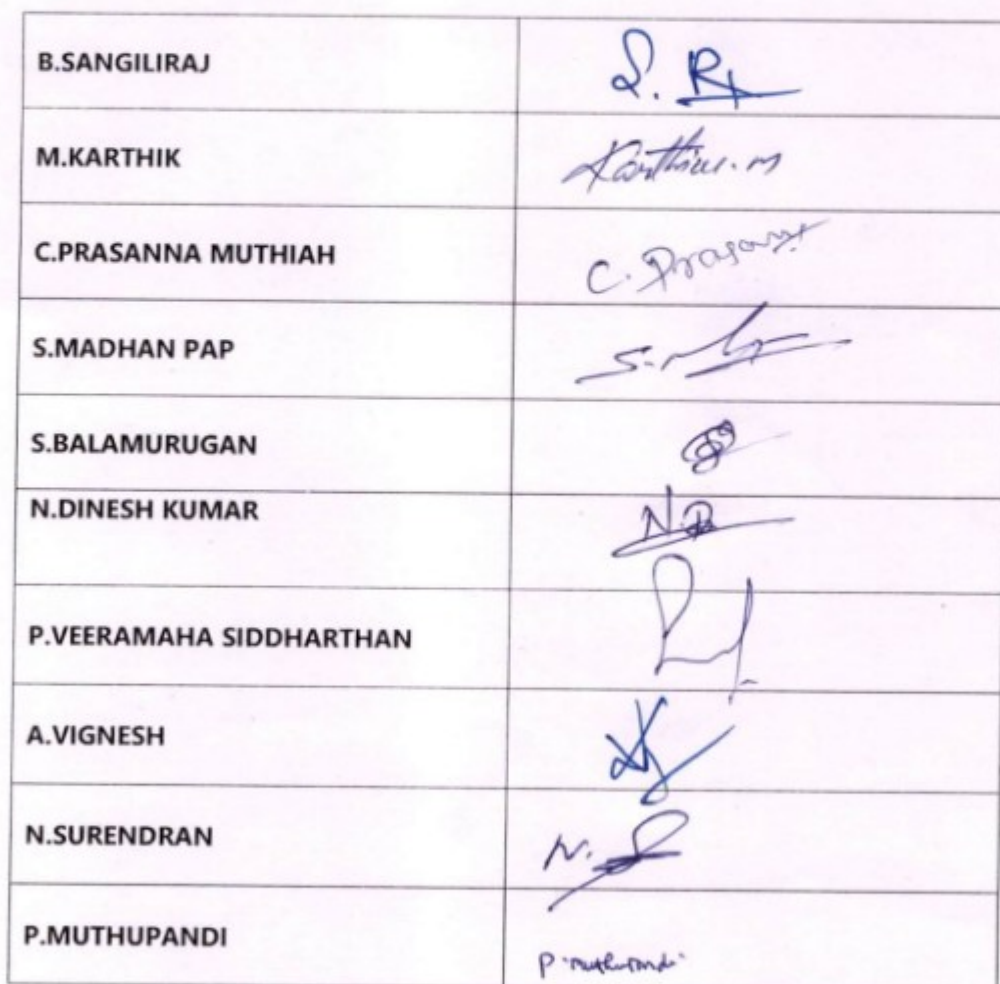 B.SANGILIRAJ
S. R
M.KARTHIK
Karthick.m
C.PRASANNA MUTHIAH
C. Prasanna
S.MADHAN PAP
S.BALAMURUGAN
N.DINESH KUMAR
N.D
P.VEERAMAHA SIDDHARTHAN
A.VIGNESH
N.SURENDRAN
N.S
P.MUTHUPANDI
P.muthupandi